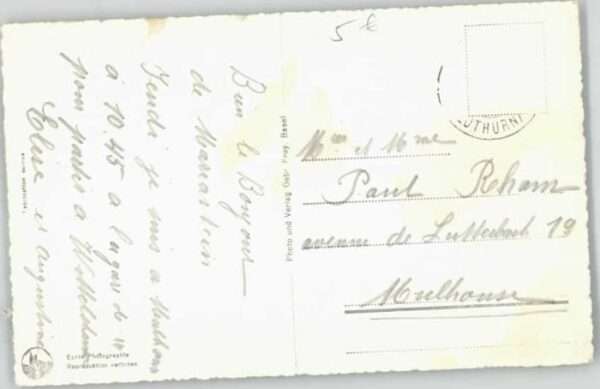 5 €
Bien le Bonjour
de Mariastein
Jeudi je suis a Mulhouse
à 10.45 a la gare de
pour partir a Wittelsheim
Elise et Augustine
Photo und Verlag Gebr. Frey, Basel
LOTHURN
Mr et Mme
Paul Reham
avenue de Lutterbach 19
Mulhouse
Echte Photographie
Reproduktion verboten